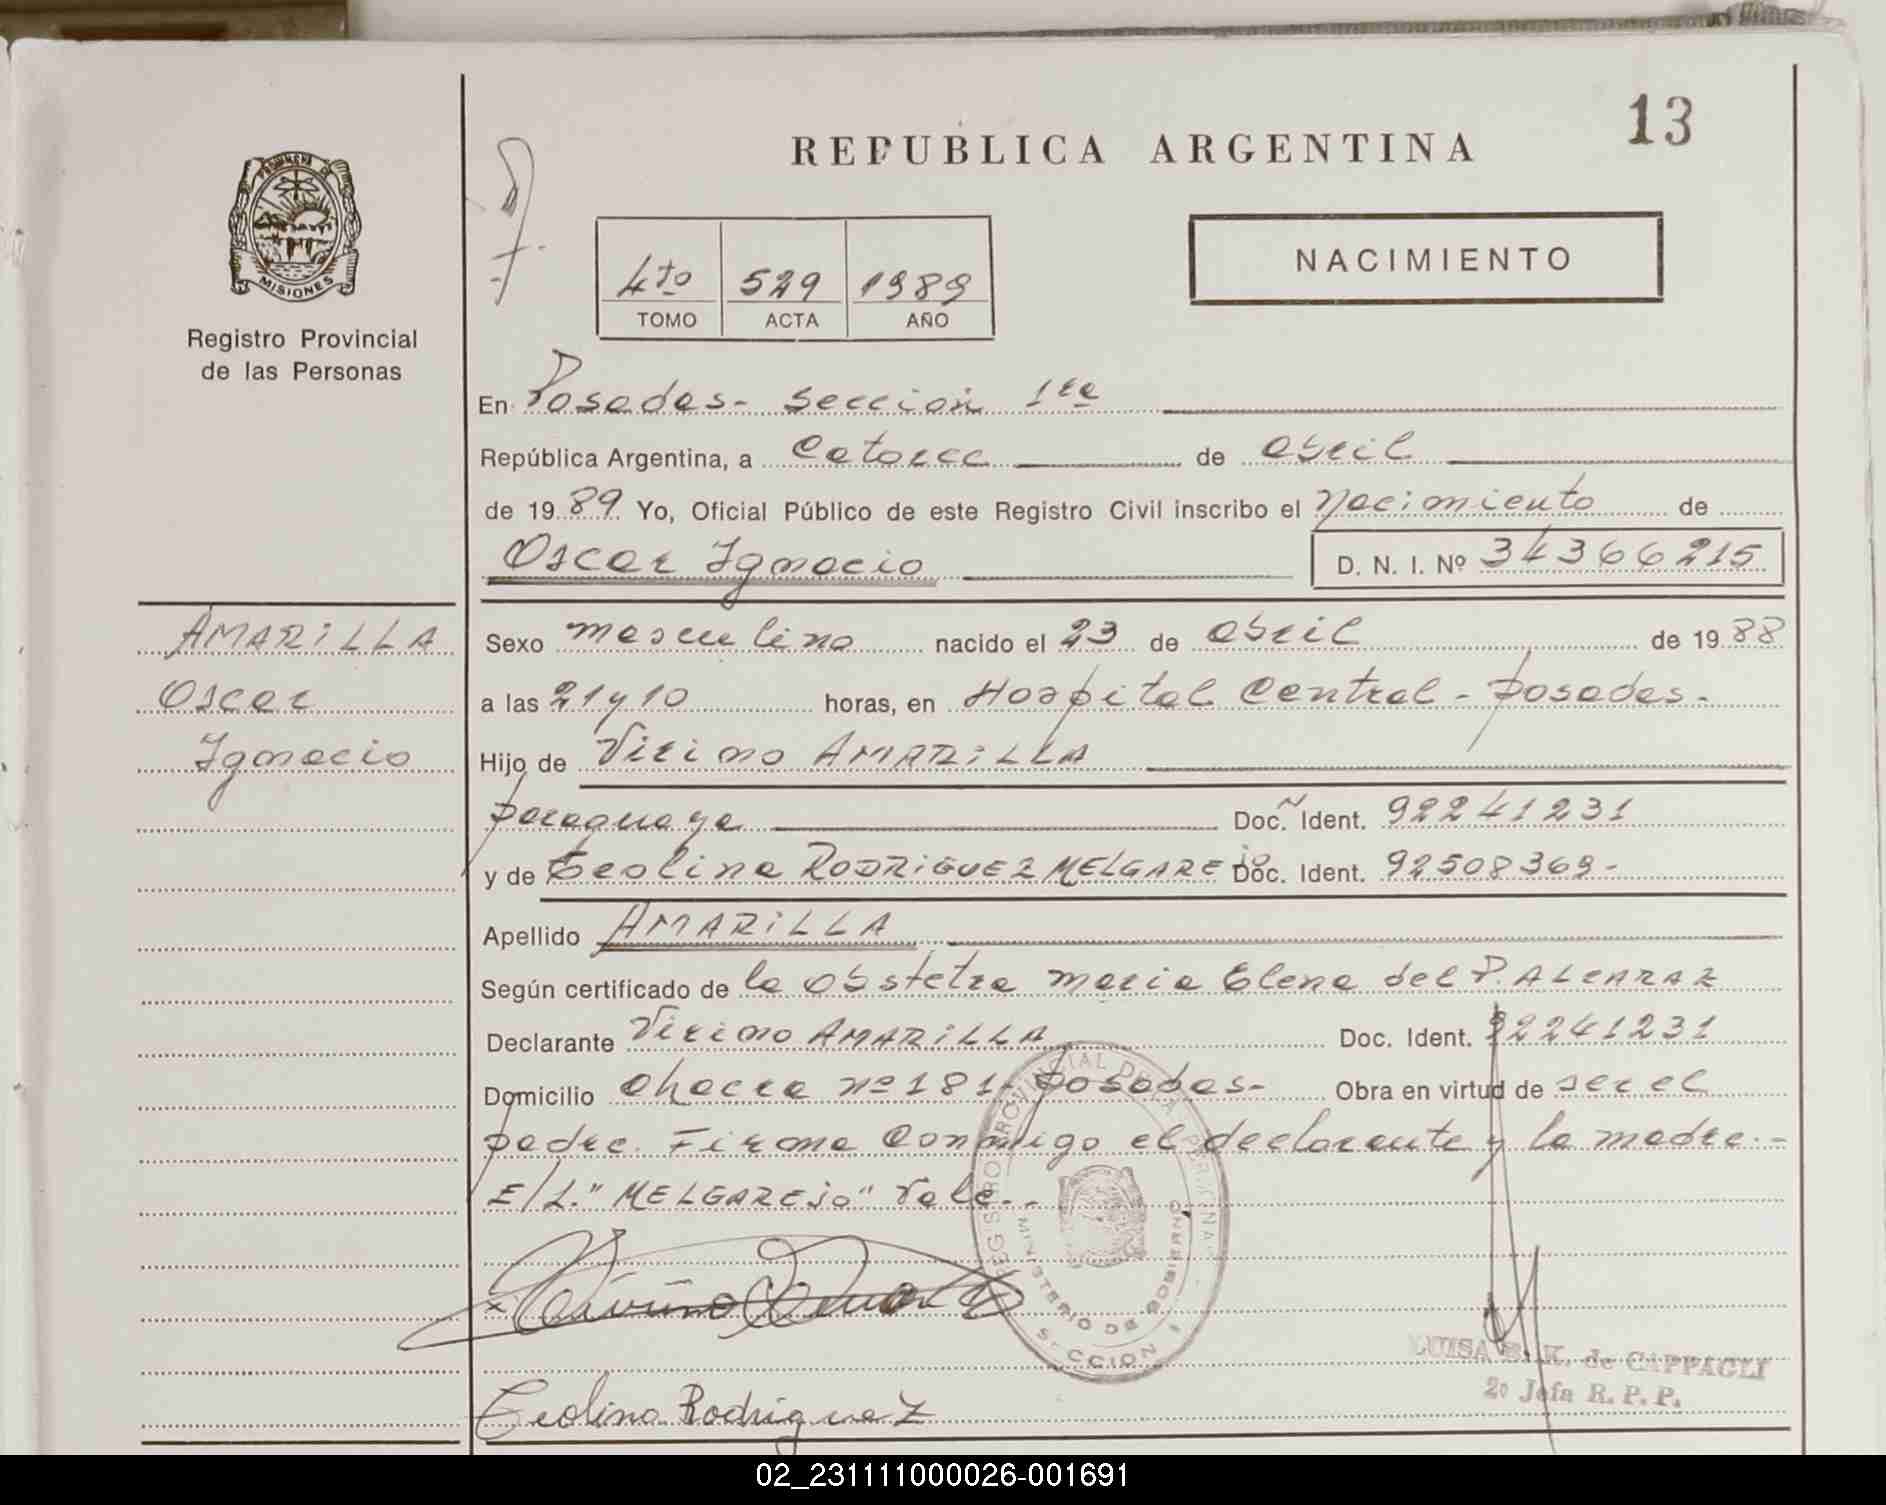 13
REPUBLICA ARGENTINA
PROVINCIA DE
MISIONES
Registro Provincial
de las Personas
4to 529 1989
TOMO ACTA AÑO
NACIMIENTO
En Posadas - sección 1ra
República Argentina, a catorce de abril
de 1989 Yo, Oficial Público de este Registro Civil inscribo el nacimiento de
Oscar Ignacio D. N. I. Nº 34366215
AMARILLA
Oscar
Ignacio
Sexo masculino nacido el 23 de abril de 1988
a las 21 y 10 horas, en Hospital Central - Posadas.
Hijo de Virino AMARILLA
paraguaya Doc. Ident. 92241231
y de Teolina RODRIGUEZ MELGAREJO Doc. Ident. 92508369-
Apellido AMARILLA
Según certificado de la obstetra maria Elena del P. ALCARAZ
Declarante Virino AMARILLA Doc. Ident. 92241231
Domicilio chacra nº 181 - Posadas - Obra en virtud de ser el
padre. Firma conmigo el declarante y la madre.-
E/L. "MELGAREJO" Vale.-
REGISTRO PROVINCIAL DE LAS PERSONAS
MINISTERIO DE GOBIERNO
SECCION 1
LUISA K. de CAPPAGLI
2º Jefa R. P. P.
Teolina Rodriguez
02_231111000026-001691